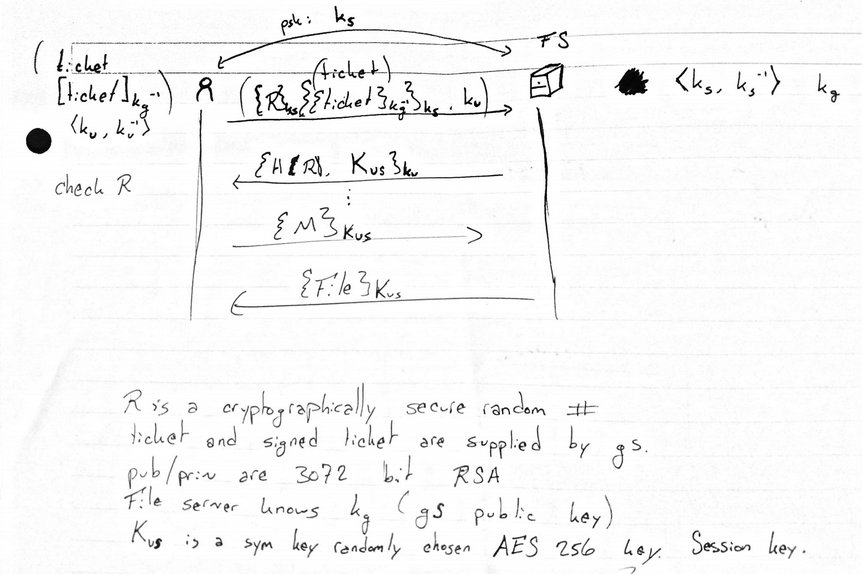 psk: ks
FS
( ticket
[ticket]kg⁻¹ )
<ku, ku⁻¹>
(ticket)
({R}ks, {{ticket}kg⁻¹}ks, ku)
<ks, ks⁻¹> kg
{H(R), Kus}ku
check R
⋮
{M}Kus
{File}Kus
R is a cryptographically secure random #
ticket and signed ticket are supplied by gs.
pub/priv are 3072 bit RSA
File server knows kg (gs public key)
Kus is a sym key randomly chosen AES 256 key. Session key.